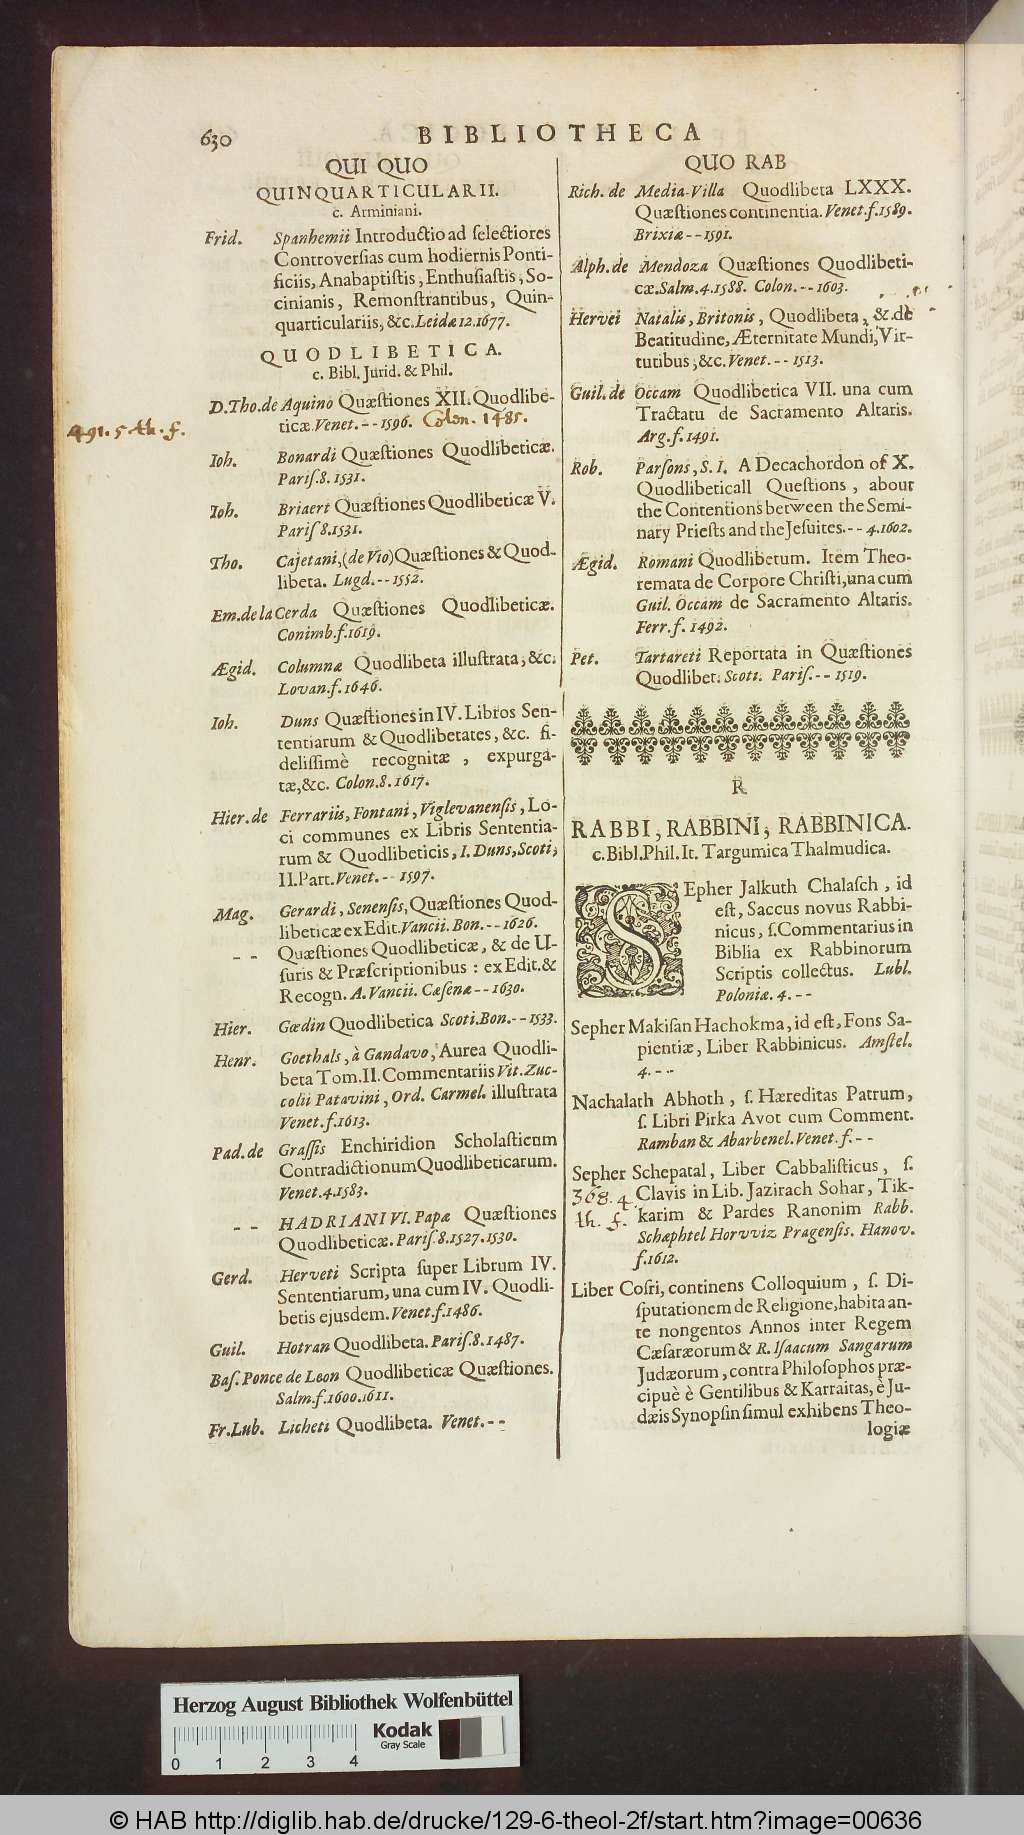 630
BIBLIOTHECA
QUI QUO
QUINQUARTICULARII.
c. Arminiani.
Frid. Spanhemii Introductio ad ſelectiores
Controverſias cum hodiernis Ponti-
ficiis, Anabaptiſtis, Enthuſiaſtis, So-
cinianis, Remonſtrantibus, Quin-
quarticulariis, &c. Leidæ 12. 1677.
QUODLIBETICA.
c. Bibl. Jurid. & Phil.
D. Tho. de Aquino Quæſtiones XII. Quodlibe-
ticæ. Venet. -- 1596. Colon. 1485.
491. 5 th. f.
Ioh. Bonardi Quæſtiones Quodlibeticæ.
Pariſ. 8. 1531.
Ioh. Briaert Quæſtiones Quodlibeticæ V.
Pariſ 8. 1531.
Tho. Cajetani, (de Vio) Quæſtiones & Quod-
libeta. Lugd. -- 1552.
Em. de la Cerda Quæſtiones Quodlibeticæ.
Conimb. f. 1619.
Ægid. Columnæ Quodlibeta illuſtrata, &c.
Lovan. f. 1646.
Ioh. Duns Quæſtiones in IV. Libros Sen-
tentiarum & Quodlibetates, &c. fi-
deliſſimè recognitæ, expurga-
tæ, &c. Colon. 8. 1617.
Hier. de Ferrariis, Fontani, Viglevanenſis, Lo-
ci communes ex Libris Sententia-
rum & Quodlibeticis, I. Duns, Scoti,
II. Part. Venet. -- 1597.
Mag. Gerardi, Senenſis, Quæſtiones Quod-
libeticæ ex Edit. Vancii. Bon. -- 1626.
-- Quæſtiones Quodlibeticæ, & de U-
ſuris & Præſcriptionibus: ex Edit. &
Recogn. A. Vancii. Cæſenæ -- 1630.
Hier. Gœdin Quodlibetica Scoti. Bon. -- 1533.
Henr. Goethals, à Gandavo, Aurea Quodli-
beta Tom. II. Commentariis Vit. Zuc-
colii Patavini, Ord. Carmel. illuſtrata
Venet. f. 1613.
Pad. de Graſſis Enchiridion Scholaſticum
Contradictionum Quodlibeticarum.
Venet. 4. 1583.
-- HADRIANI VI. Papæ Quæſtiones
Quodlibeticæ. Pariſ. 8. 1527. 1530.
Gerd. Herveti Scripta ſuper Librum IV.
Sententiarum, una cum IV. Quodli-
betis ejusdem. Venet. f. 1486.
Guil. Hotran Quodlibeta. Pariſ. 8. 1487.
Baſ. Ponce de Leon Quodlibeticæ Quæſtiones.
Salm. f. 1600. 1611.
Fr. Lub. Licheti Quodlibeta. Venet. --
QUO RAB
Rich. de Media-Villa Quodlibeta LXXX.
Quæſtiones continentia. Venet. f. 1589.
Brixiæ -- 1591.
Alph. de Mendoza Quæſtiones Quodlibeti-
cæ. Salm. 4. 1588. Colon. -- 1603.
Hervei Natalis, Britonis, Quodlibeta, & de
Beatitudine, Æternitate Mundi, Vir-
tutibus, &c. Venet. -- 1513.
Guil. de Occam Quodlibetica VII. una cum
Tractatu de Sacramento Altaris.
Arg. f. 1491.
Rob. Parſons, S. I. A Decachordon of X.
Quodlibeticall Queſtions, about
the Contentions between the Semi-
nary Prieſts and the Jeſuites. -- 4. 1602.
Ægid. Romani Quodlibetum. Item Theo-
remata de Corpore Chriſti, una cum
Guil. Occam de Sacramento Altaris.
Ferr. f. 1492.
Pet. Tartareti Reportata in Quæſtiones
Quodlibet. Scoti. Pariſ. -- 1519.
R
RABBI, RABBINI, RABBINICA.
c. Bibl. Phil. It. Targumica Thalmudica.
SEpher Jalkuth Chalaſch, id
eſt, Saccus novus Rabbi-
nicus, ſ. Commentarius in
Biblia ex Rabbinorum
Scriptis collectus. Lubl.
Poloniæ. 4. --
Sepher Makiſan Hachokma, id eſt, Fons Sa-
pientiæ, Liber Rabbinicus. Amſtel.
4. --
Nachalath Abhoth, ſ. Hæreditas Patrum,
ſ. Libri Pirka Avot cum Comment.
Ramban & Abarbenel. Venet. f. --
Sepher Schepatal, Liber Cabbaliſticus, ſ.
368. 4 Clavis in Lib. Jazirach Sohar, Tik-
th. f. karim & Pardes Ranonim Rabb.
Schæphtel Horvviz Pragenſis. Hanov.
f. 1612.
Liber Coſri, continens Colloquium, ſ. Di-
ſputationem de Religione, habita an-
te nongentos Annos inter Regem
Cæſaræorum & R. Iſaacum Sangarum
Judæorum, contra Philoſophos præ-
cipuè è Gentilibus & Karraitas, è Ju-
dæis Synopſin ſimul exhibens Theo-
logiæ
Herzog August Bibliothek Wolfenbüttel
Kodak
Gray Scale
0 1 2 3 4
© HAB http://diglib.hab.de/drucke/129-6-theol-2f/start.htm?image=00636